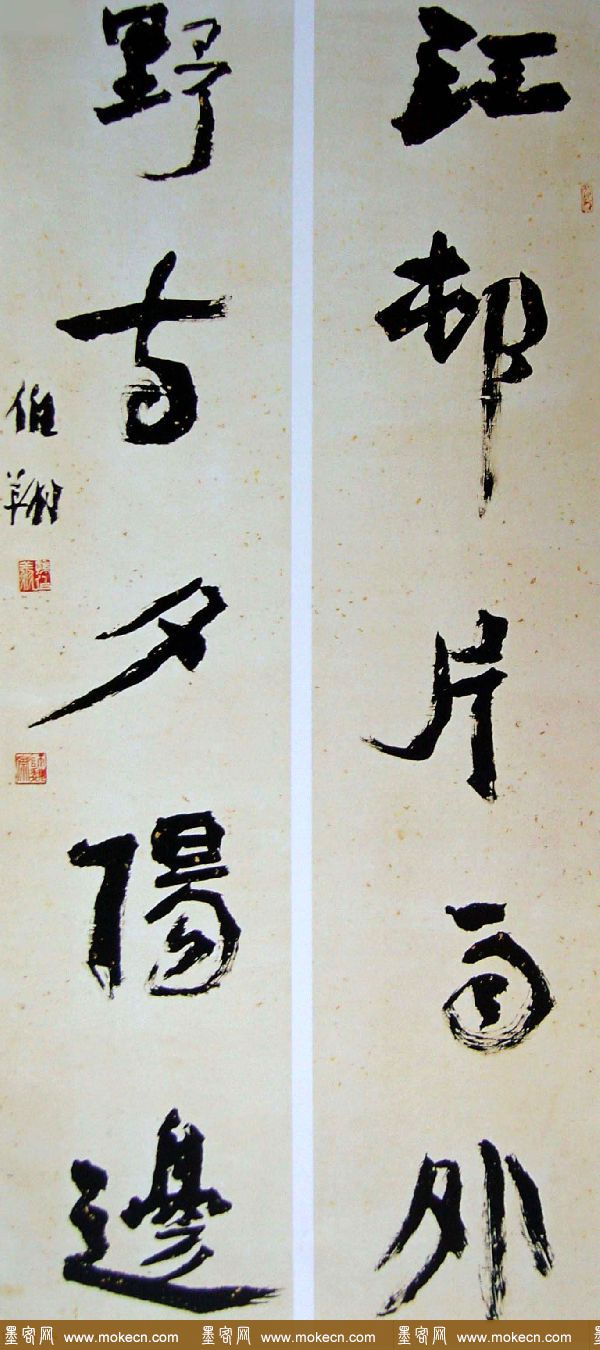 江邨片雨外
野寺夕陽邊
伯翔
墨客网 www.mokecn.com 墨客网 www.mokecn.com 墨客网 www.mokecn.com